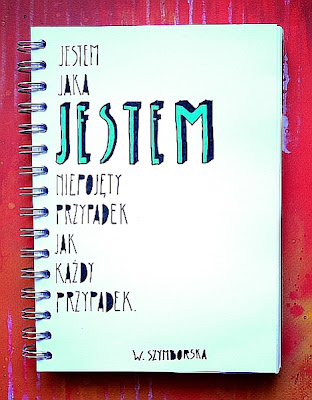 JESTEM
JAKA
JESTEM
NIEPOJĘTY
PRZYPADEK
JAK
KAŻDY
PRZYPADEK.
W. SZYMBORSKA